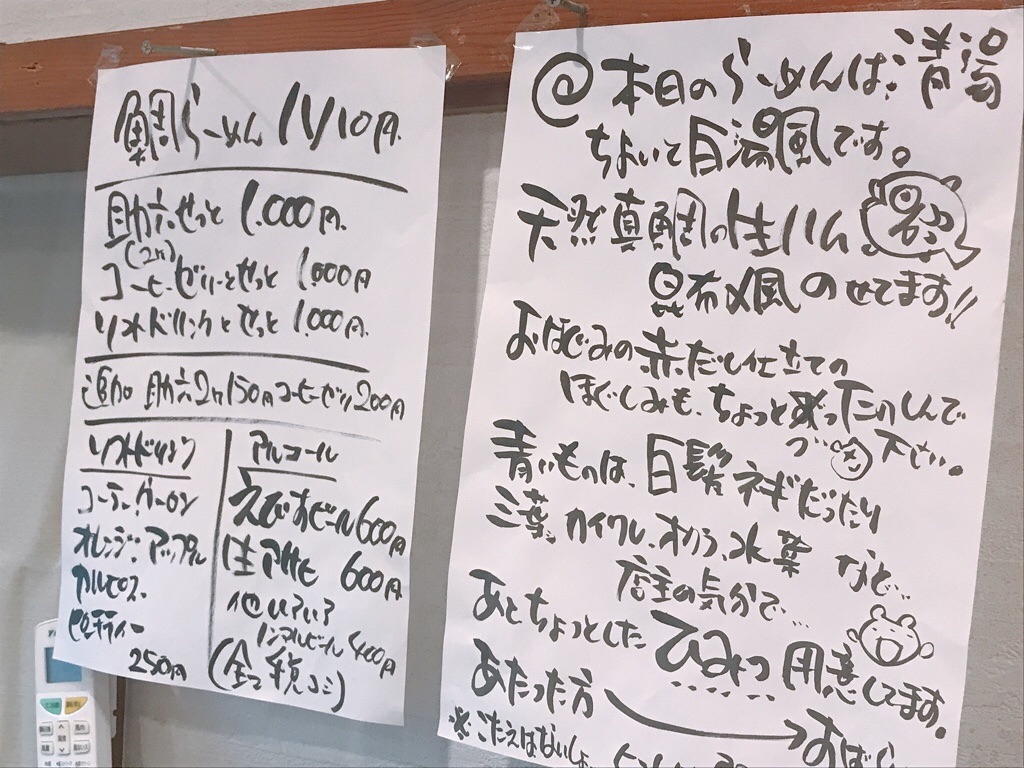 鯛らーめん
助六せっと 1.000円.
(2ヶ)
コーヒーゼリーとせっと 1.000円
ソフトドリンクとせっと 1.000円.
追加 助六2ヶ150円 コーヒーゼリ 200円
ソフトドリンク
コーラ.ウーロン
オレンジ.アップル
カルピス.
ピーチティー
250円
アルコール
えびすビール 600円
生アサヒ 600円
他いろいろ
ノンアルビール 400円
(全て税コミ)
@本日のらーめんは、清湯
ちょいと白湯風です。
天然真鯛の生ハム
昆布〆風のせてます!!
おなじみの赤だし仕立ての
ほぐしみも、ちょっと
たのしんで
下さい。
青いものは、白髪ネギだったり
三葉、カイワレ、オクラ、水菜 など...
店主の気分で...
あとちょっとした ひみつ 用意してます。
あたった方
すばら
※こたえはないしょ